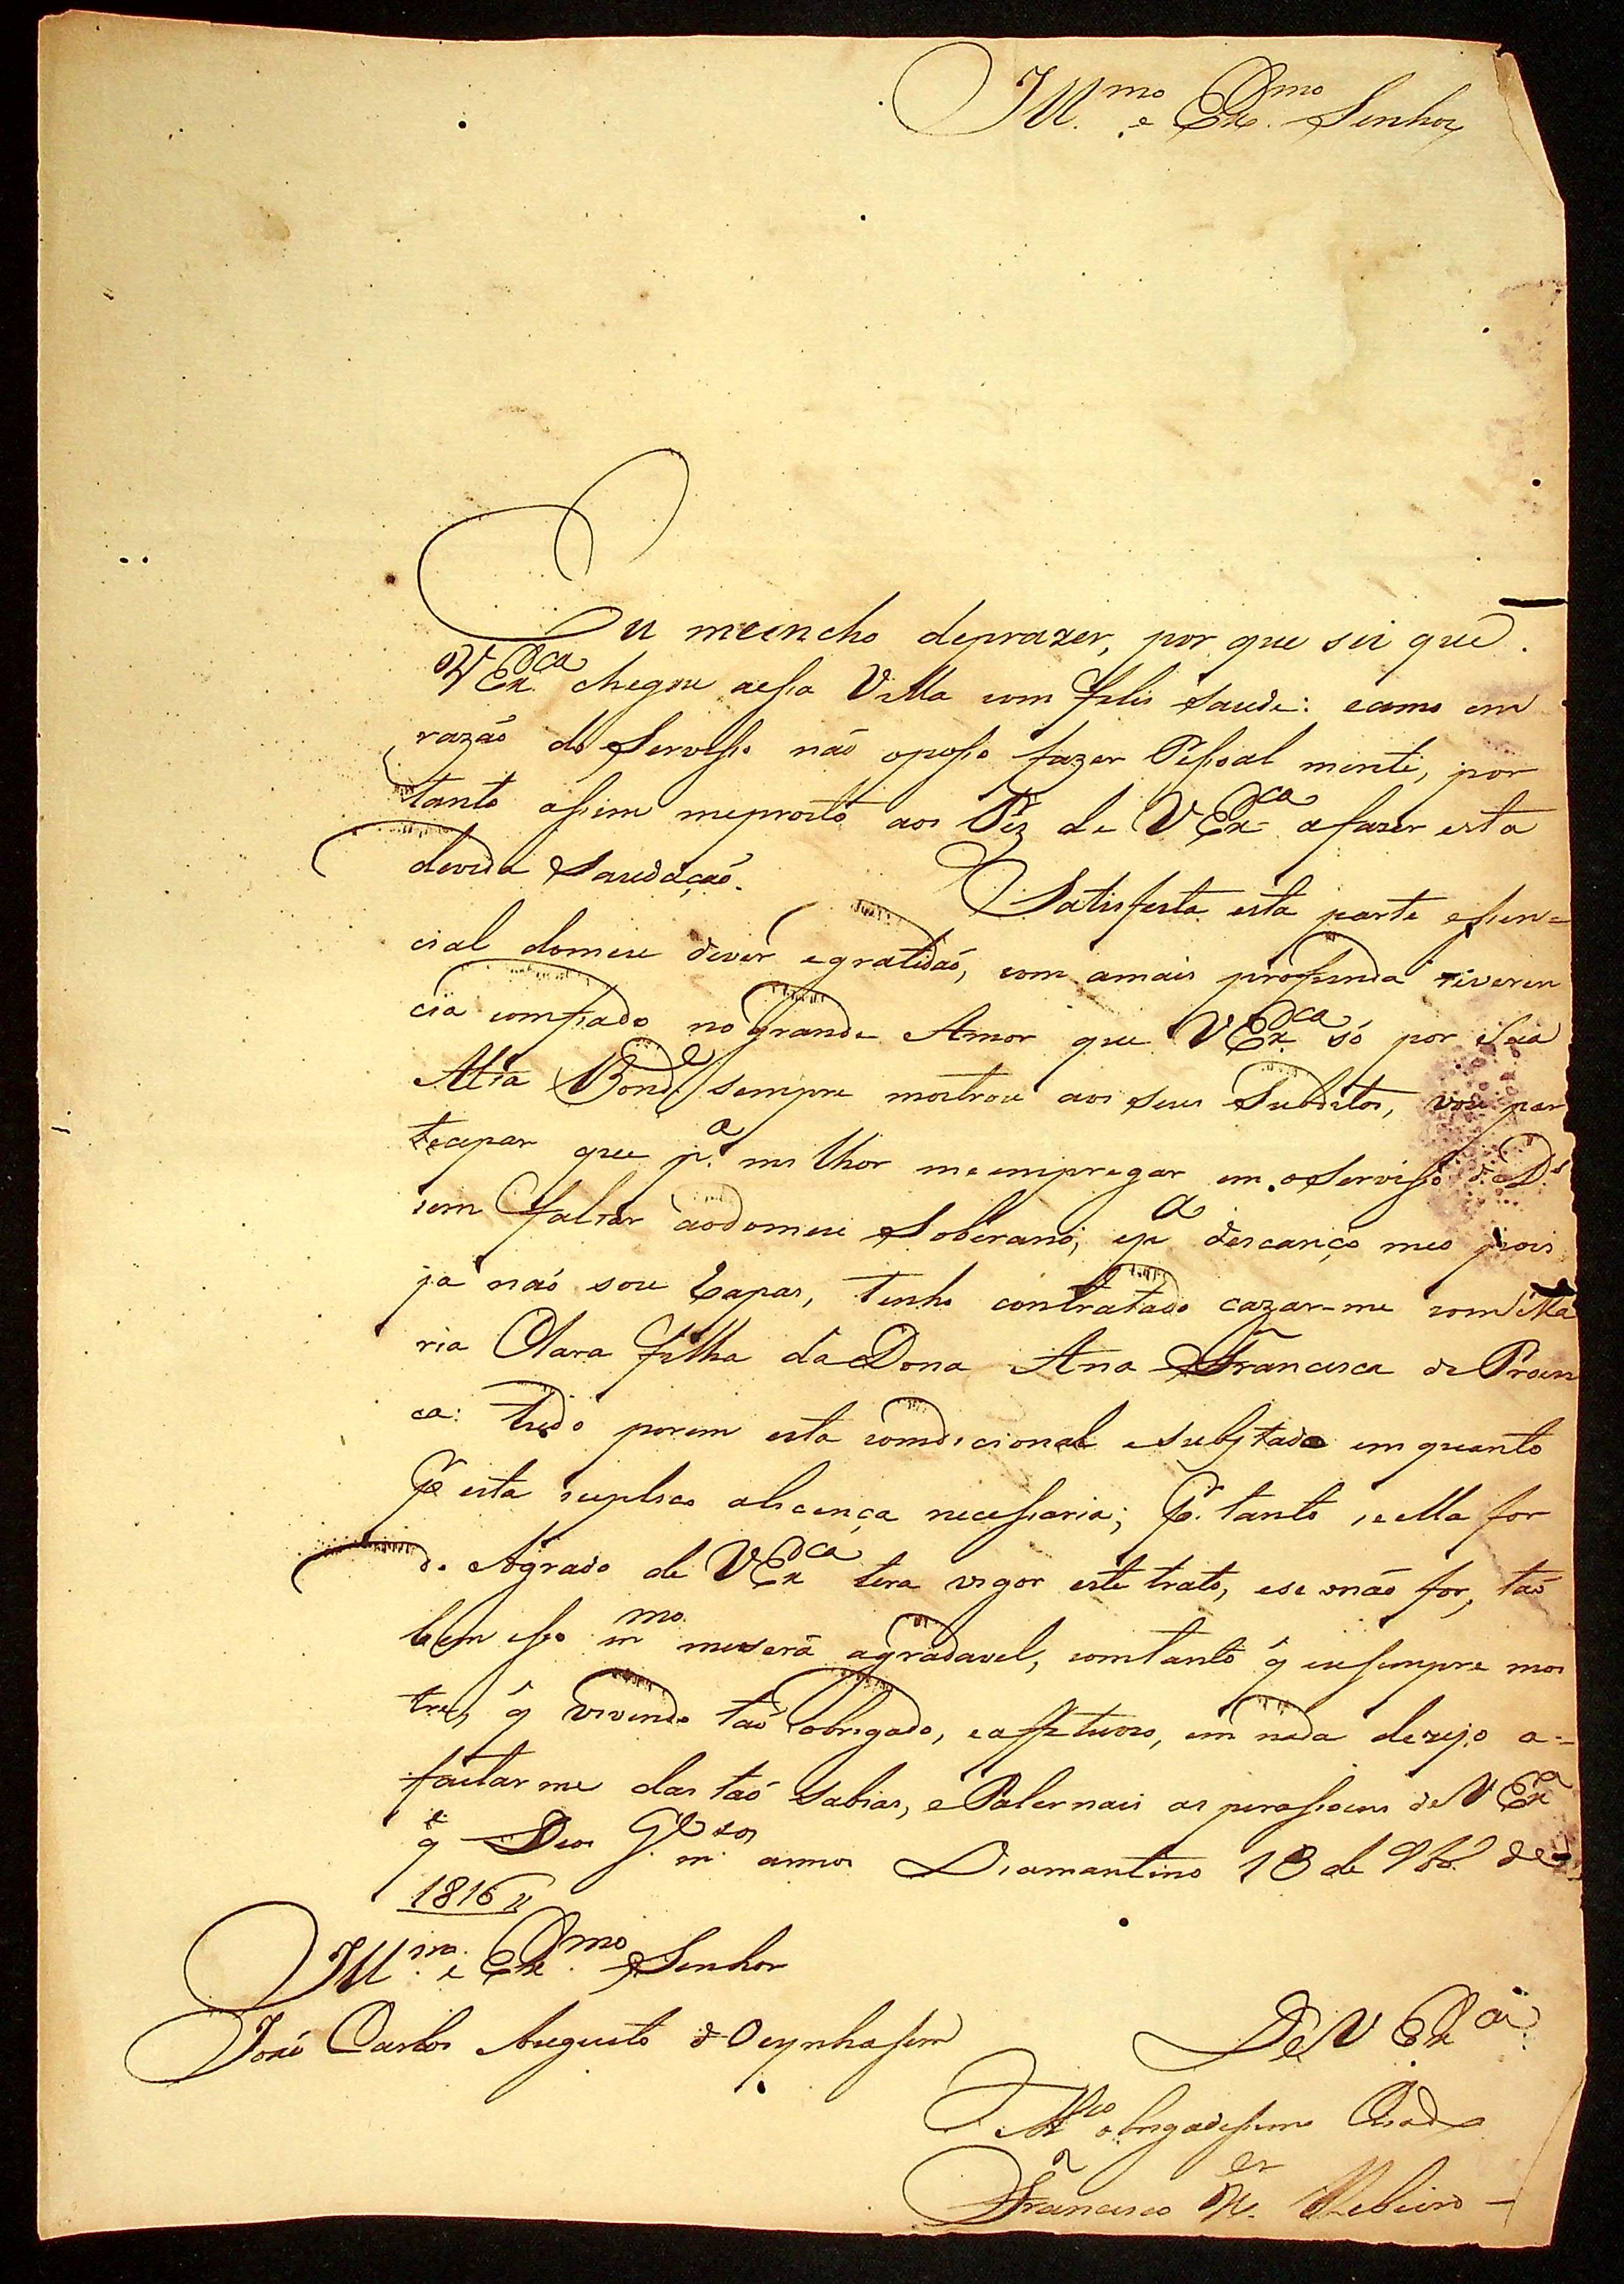 Ill.mo e Ex.mo Senhor
Eu me encho deprazer, por que sei que
V Ex.ca chegou aessa Villa com felis saude: ecomo em
razaõ do Servisso naõ oposso fazer Pessoal mente, por
tanto assim meprosto aos Péz de V Ex.ca afazer esta
devida Saudaçaõ.
Satisfeita esta parte essen=
cial domeu dever egratidaõ, com amais profunda reveren
cia comfiado no grande Amor que V Ex.ca só por Sua
Alta Bond.e sempre mostrou aos seus Subditos, vou par
tecipar que p.a milhor meempregar em oservisso de D.s
sem faltar aodomeu Soberano, epa descanço meo pois
ja naõ sou Rapas, tenho contratado cazar-me com Ma
ria Clara filha da Dona Ana Francisca de Proen
ca: tudo porem esta comdicional esubjtado em quanto
Pr esta suplico alicença necessaria; Pr. tanto seella for
do Agrado de V Ex.ca tera vigor este trato, ese naõ for, taõ
bem isso mmo meserá agradavel, comtanto q̂ eusempre mos
tre, q̂ vivendo taõ obrigado, eaffetuozo, em nada dezejo a=
fastarme das taõ sabias, ePaternais as perassoens de V Exa
q̂ Deos G.e m.tos annos Diamantino 18 de 9br.o de
1816
Ill.mo e Ex.mo Senhor
Joaõ Carlos Augusto d Oeynhasem
De V Exa
M.to obrigadissimo Criado
Francisco X.er Ribeiro